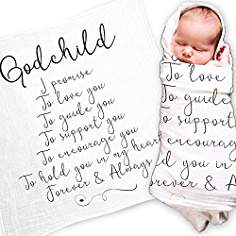 Godchild
I promise
To love you
To guide you
To support you
To encourage you
To hold you in my heart
Forever & Always
To love
To guide
To support
encourage
d you in
ever & A